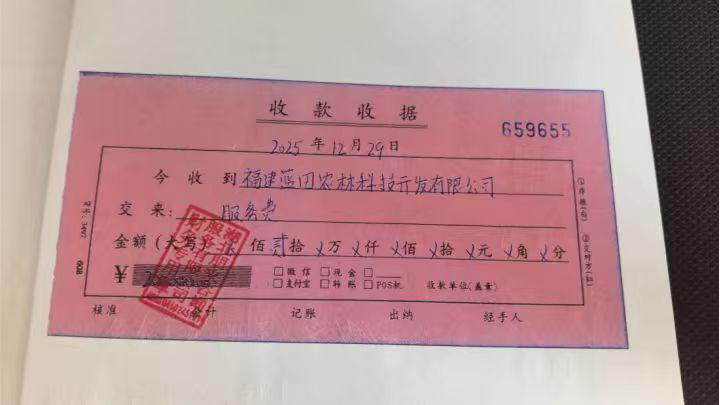 收款收据
659655
2025年12月29日
今收到 福建蓝田农林科技开发有限公司
交来: 服务费
金额（大写） 佰贰拾X万X仟X佰X拾X元X角X分
¥
□微信 □现金 □
□支付宝 □转账 □POS机 收款单位(盖章)
核准 会计 记账 出纳 经手人
①存根(白)
②交对方(红)
608